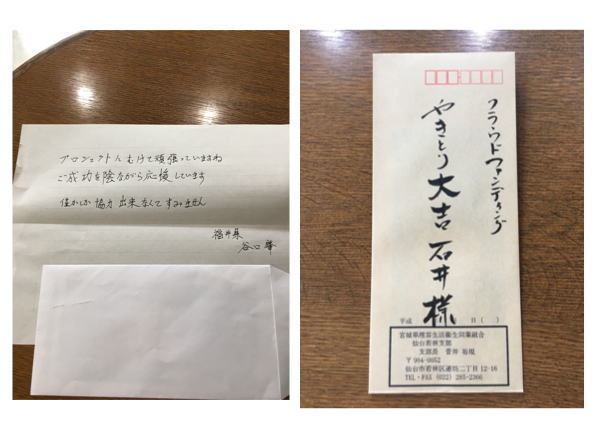 プロジェクトにむけて頑張っていますね
ご成功を陰ながら応援しています
僅かしか協力出来なくてすみません
福井県
谷口
クラウドファンディング
やきとり大吉 石井様
平成 日( )
宮城県理容生活衛生同業組合
仙台若林支部
支部長 菅井
〒984-0052
仙台市若林区連坊二丁目12-16
TEL・FAX (022) 285-2366